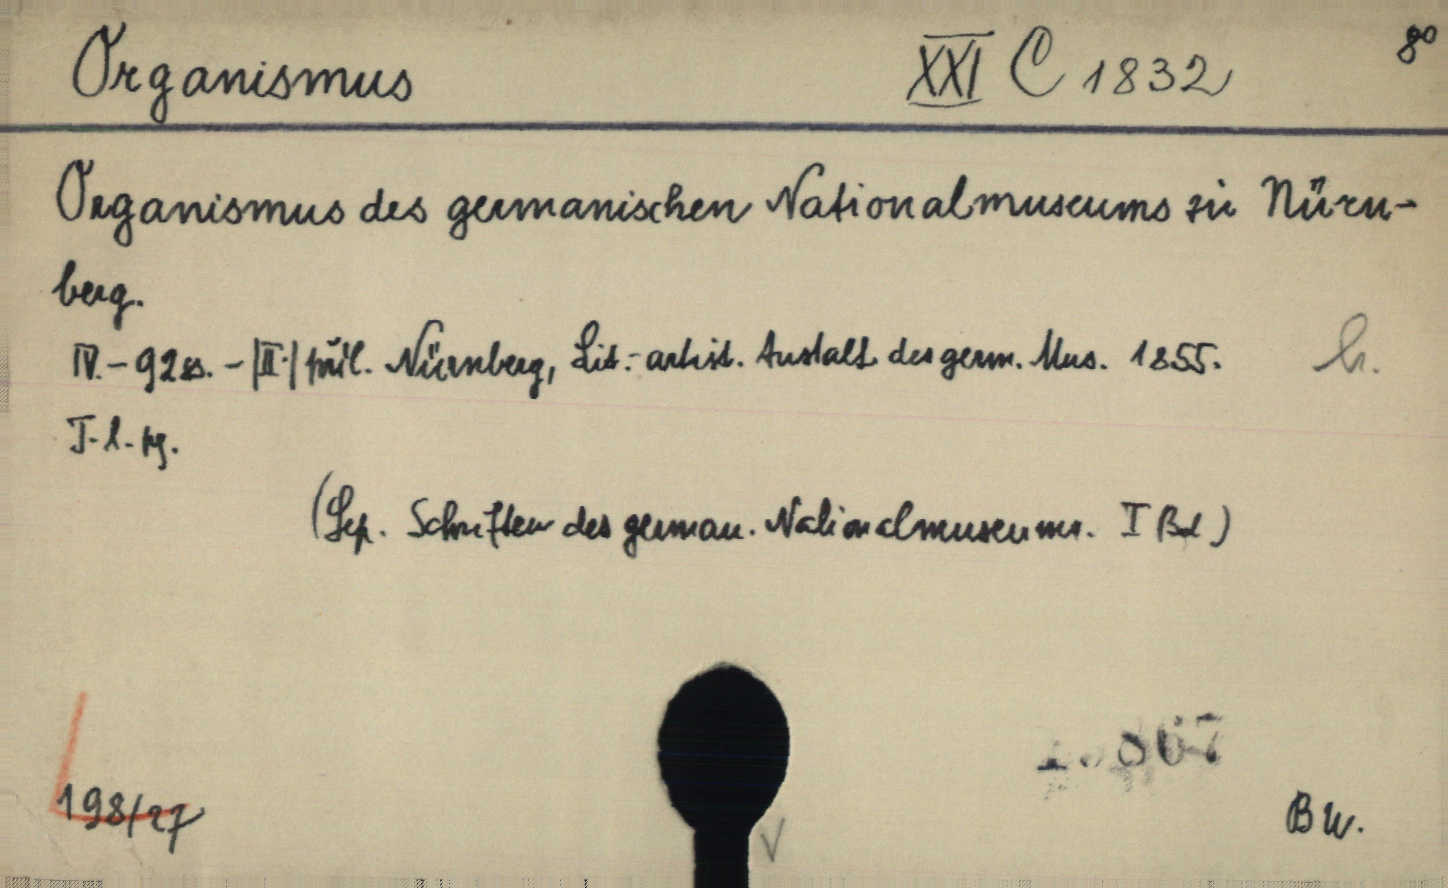 Organismus XXI C 1832 8°
Organismus des germanischen Nationalmuseums zu Nürn-
berg.
IV.-92 s. -|II.| príl. Nürnberg, Lit.-artist. Anstalt des germ. Mus. 1855.
T. l. pg.
(Sep. Schriften des german. Nationalmuseums. I Bd)
198/27
BW.